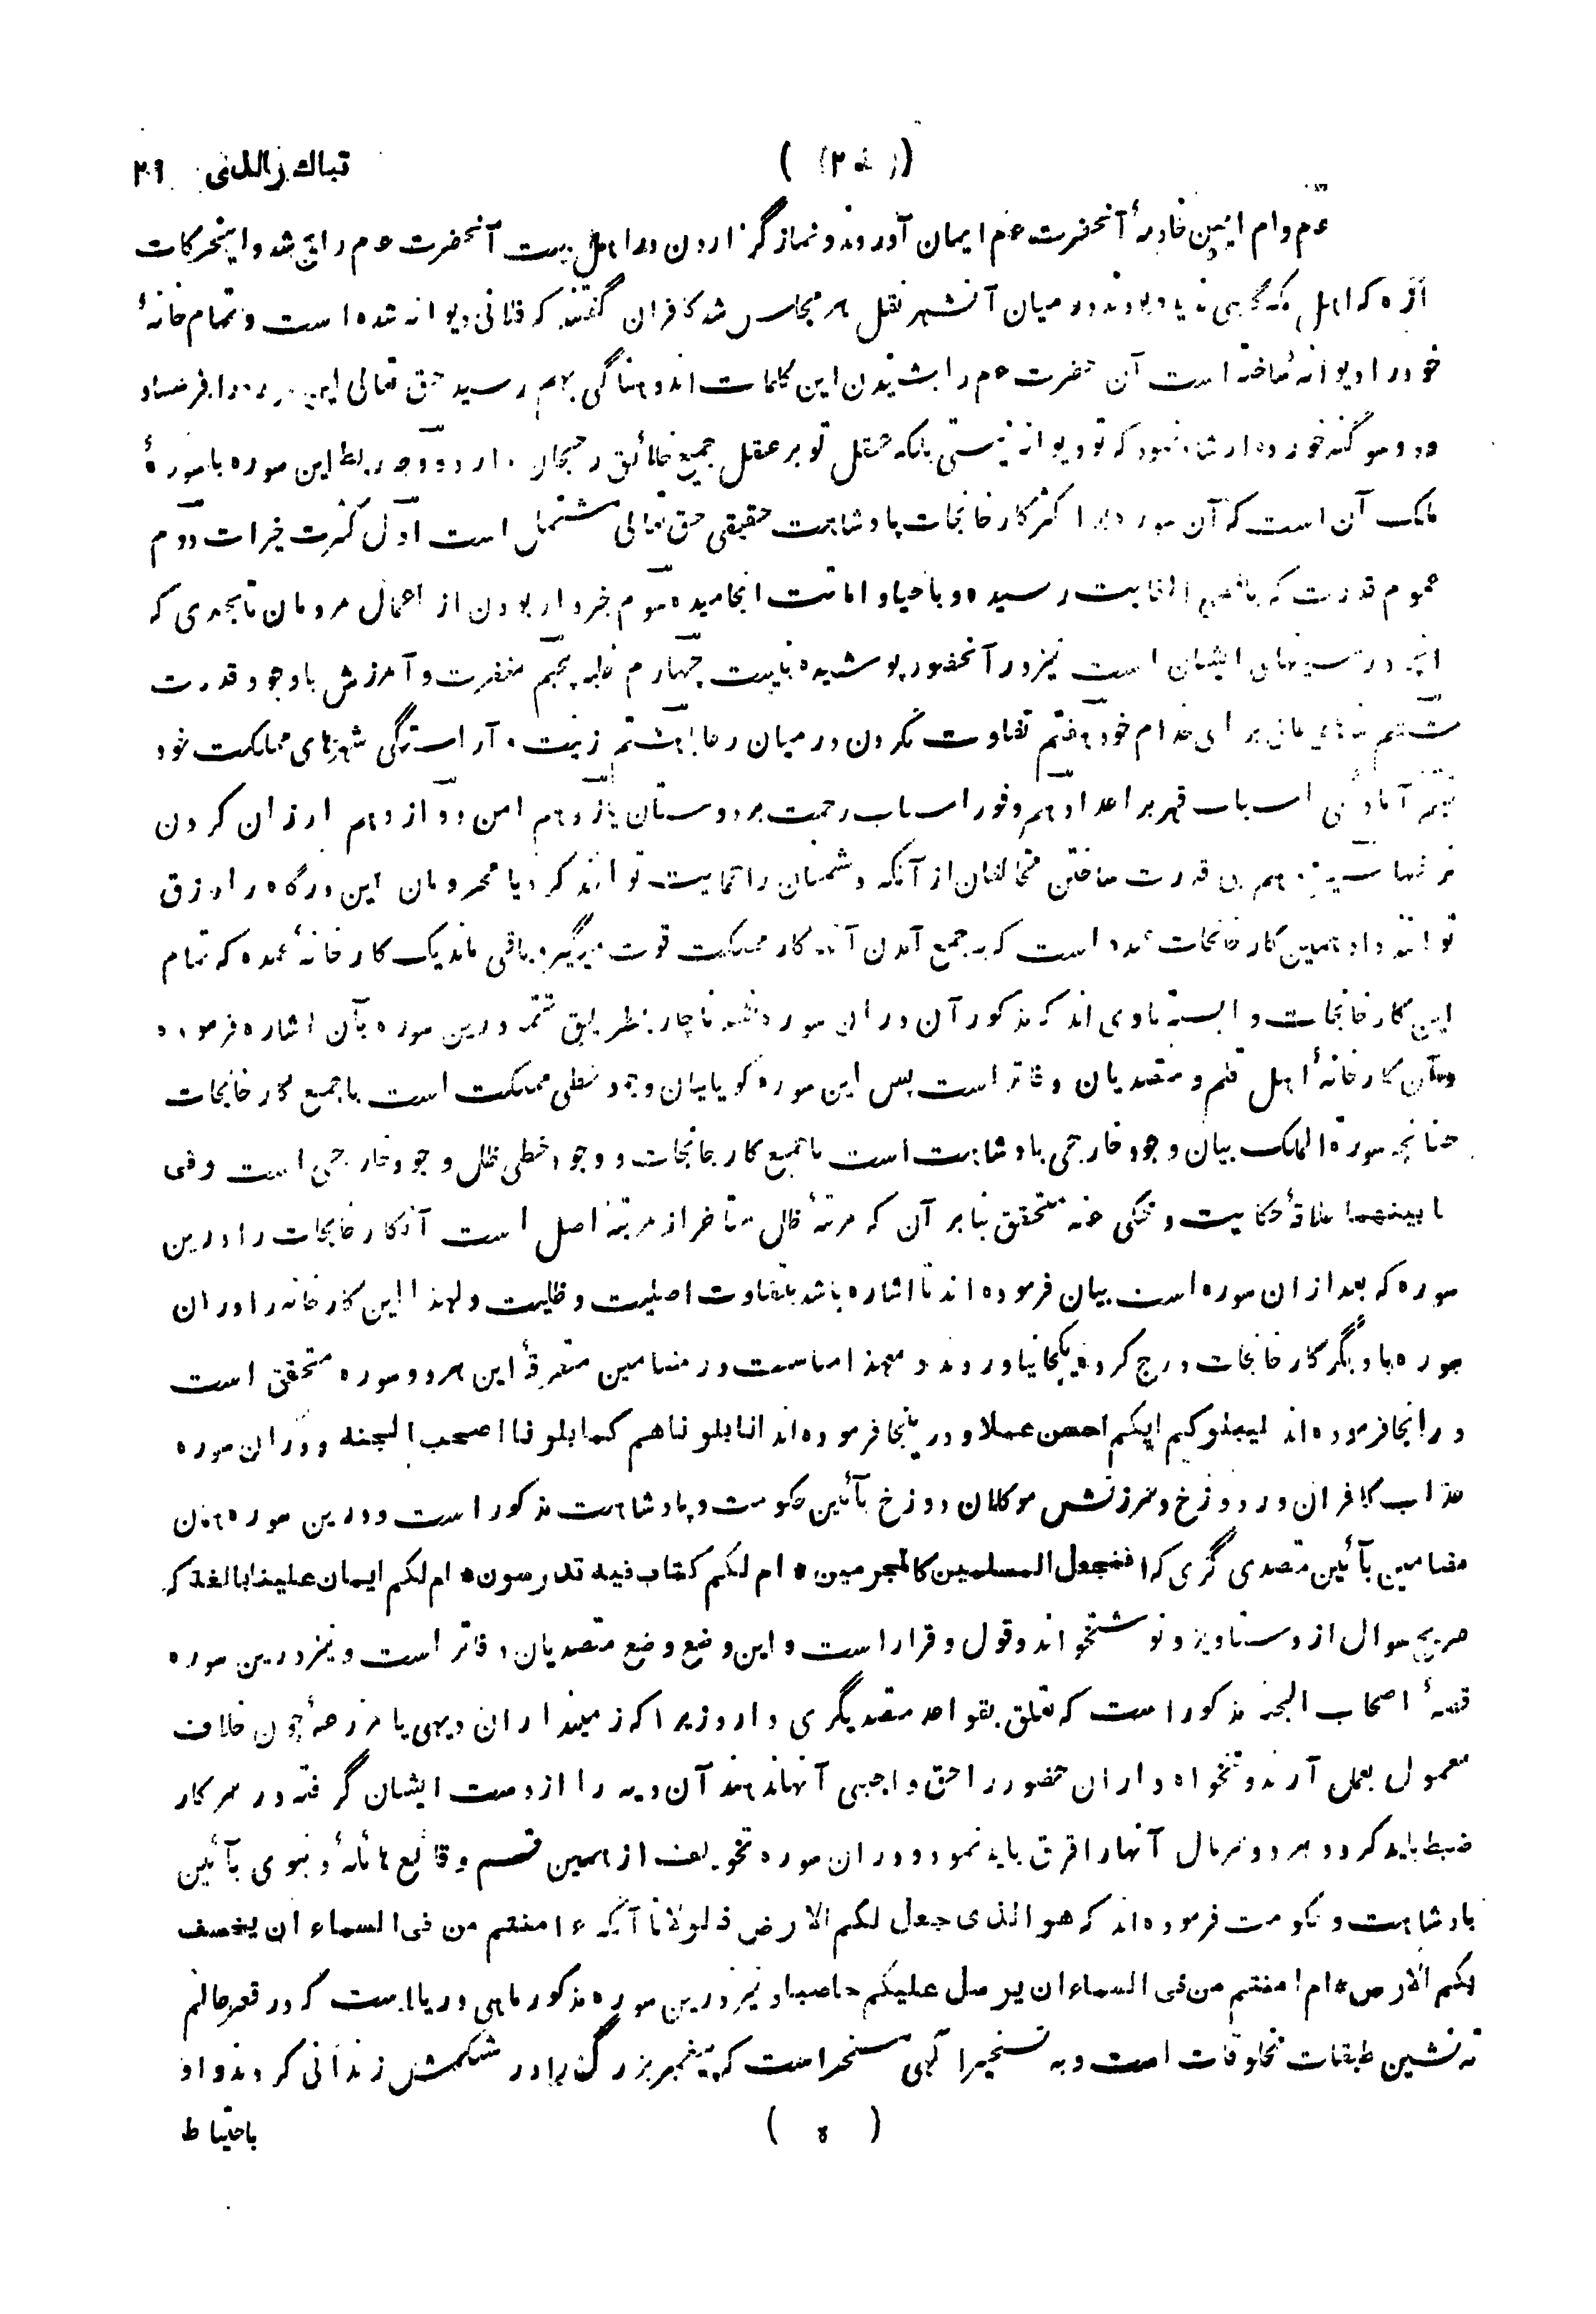 تباك الذى ٢٩
عم وام ایمن خادمهٔ آنحضرت عم ایمان آوردند و نماز گزاردن در اهل بیت آنحضرت عم رائج شد و اینحرکات
تازه که اهل مکه گهی ندیده بودند در میان آنشهر نقل هر مجلس شد کافران گفتند که فلانی دیوانه شده است و تمام خانهٔ
خود را دیوانه ساخته است آن حضرت عم را بشنیدن این کلمات اندوهناکی بهم رسید حق تعالی این سوره را فرستاد
و سوگند خورده ارشاد نمود که تو دیوانه نیستی بلکه عقل تو بر عقل جمیع خلائق رجحان دارد و وجه ربط این سوره با سورهٔ
ملک آن است که آن سوره بر اکثر کارخانجات پادشاهت حقیقی حق تعالی مشتمل است اول کثرت خیرات دوم
عموم قدرت که رسیده و باحیا و اماتت انجامیده سوم خبردار بودن از اعمال مردمان تا بحدی که
آنچه در سینهای ایشان است نیز در آنحضور پوشیده نیست چهارم غلبه پنجم مغفرت و آمرزش با وجود قدرت
ششم برای خدام خود هفتم تفاوت نکردن در میان رعایا هشتم زینت و آراستگی شهرهای مملکت خود
نهم آمادگی اسباب قهر بر اعدا دهم وفور اسباب رحمت بر دوستان یازدهم امن دوازدهم ارزان کردن
نرخها سیزدهم بی قدرت ساختن مخالفان از آنکه دشمنان را حمایت توانند کرد یا محرومان این درگاه را رزق
توانند داد همین کارخانجات عمده است که بجمع آمدن آنها کار مملکت قوت میگیرد باقی ماند یک کارخانهٔ عمده که تمام
این کارخانجات وابسته باوی اند که مذکور آن دران سوره نشد ناچار بطریق تتمه درین سوره بآن اشاره فرموده
وآن کارخانهٔ اهل قلم و متصدیان دفاتر است پس این سوره گویا بیان وجود خطی مملکت است با جمیع کارخانجات
چنانچه سورة الملک بیان وجود خارجی بادشاهت است با جمیع کارخانجات و وجود خطی ظل وجود خارجی است و فی
ما بینهما علاقهٔ حکایت و محکی عنه متحقق بنابر آن که مرتبهٔ ظل متأخر از مرتبهٔ اصل است آن کارخانجات را درین
سوره که بعد ازان سوره است بیان فرموده اند تا اشاره باشد بتفاوت اصلیت و ظلیت و لهذا این کارخانه را دران
سوره با دیگر کارخانجات درج کرده یکجا نیاوردند و معهذا مناسبت در مضامین متفرقهٔ این هر دو سوره متحقق است
درانجا فرموده اند لیبلوکم ایکم احسن عملا و درینجا فرموده اند انا بلوناهم کما بلونا اصحب الجنة و دران سوره
عذاب کافران در دوزخ و سرزنش موکلان دوزخ بآئین حکومت و پادشاهت مذکور است و درین سوره همان
مضامین بآئین متصدی گری که افنجعل المسلمین کالمجرمین * ام لکم کتاب فیه تدرسون * ام لکم ایمان علینا بالغة که
صریح سوال از دستاویز و نوشتخواند و قول و قرار است و این وضع وضع متصدیان دفاتر است و نیز درین سوره
قصهٔ اصحاب الجنه مذکور است که تعلق بقواعد متصدیگری دارد زیرا که زمینداران دیهی یا مزرعهٔ چون خلاف
معمول بعمل آرند و تنخواه داران حضور را حق واجبی آنها ندهند آن دیه را از دست ایشان گرفته در سرکار
ضبط باید کرد و هر دو سر مال آنها را قرق باید نمود و دران سوره تخویف از همین قسم وقائع هائلهٔ دنیوی بآئین
بادشاهت و حکومت فرموده اند که هو الذی جعل لکم الارض ذلولا تا آنکه ءامنتم من فی السماء ان یخسف
بکم الارض * ام امنتم من فی السماء ان یرسل علیکم حاصبا و نیز درین سوره مذکور ماهی دریا است که در قعر عالم
ته نشین طبقات مخلوقات است و به تسخیر الهی مسخر است که پیغمبر بزرگ را در شکمش زندانی کردند و او
( ٥ )
باحتیاط